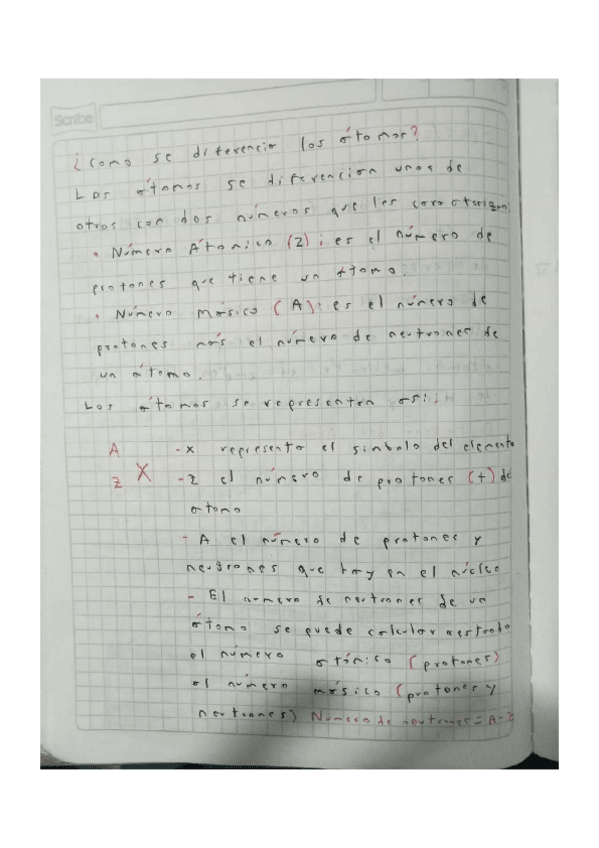 Scribe
¿Como se diferencia los átomos?
Los átomos se diferencian unos de
otros con dos números que les caracterizan.
• Número Átomico (Z): es el número de
protones que tiene un átomo.
• Número másico (A): es el número de
protones más el número de neutrones de
un átomo.
Los átomos se representan así:
A - x representa el simbolo del elemento
Z X - Z el número de protones (+) de
atomo
- A el número de protones y
neutrones que hay en el núcleo
- El número de neutrones de un
átomo se puede calcular
el número atómico (protones)
al número másico (protones y
neutrones) Numero de neutrones = A-Z